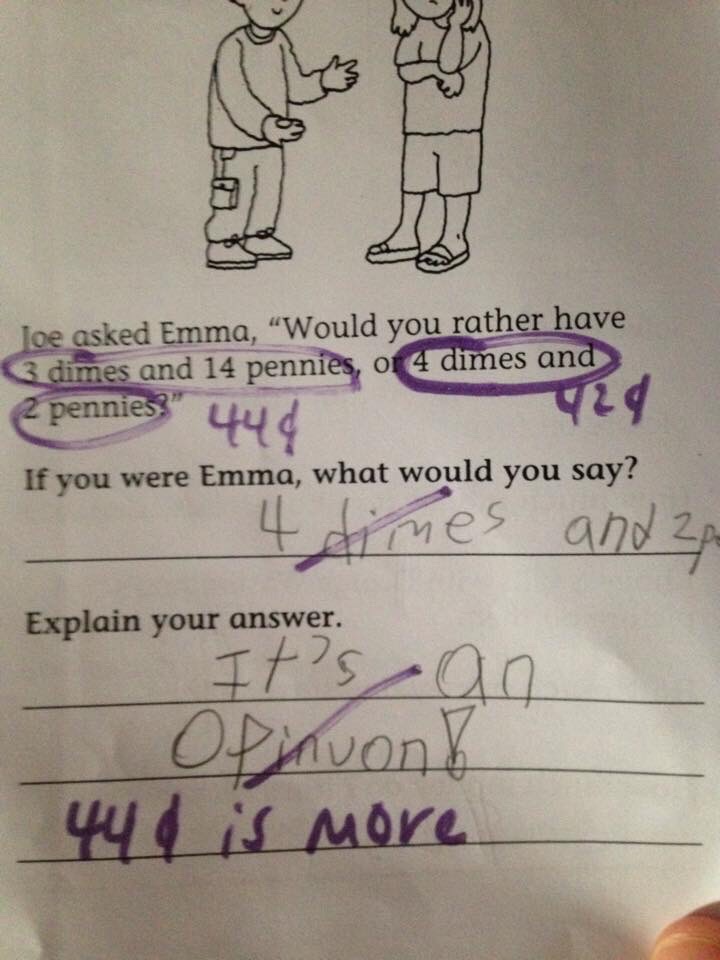 Joe asked Emma, “Would you rather have
3 dimes and 14 pennies, or 4 dimes and
2 pennies?” 44¢ 42¢
If you were Emma, what would you say?
4 dimes and 2
Explain your answer.
It's an
Opinuon!
44¢ is more